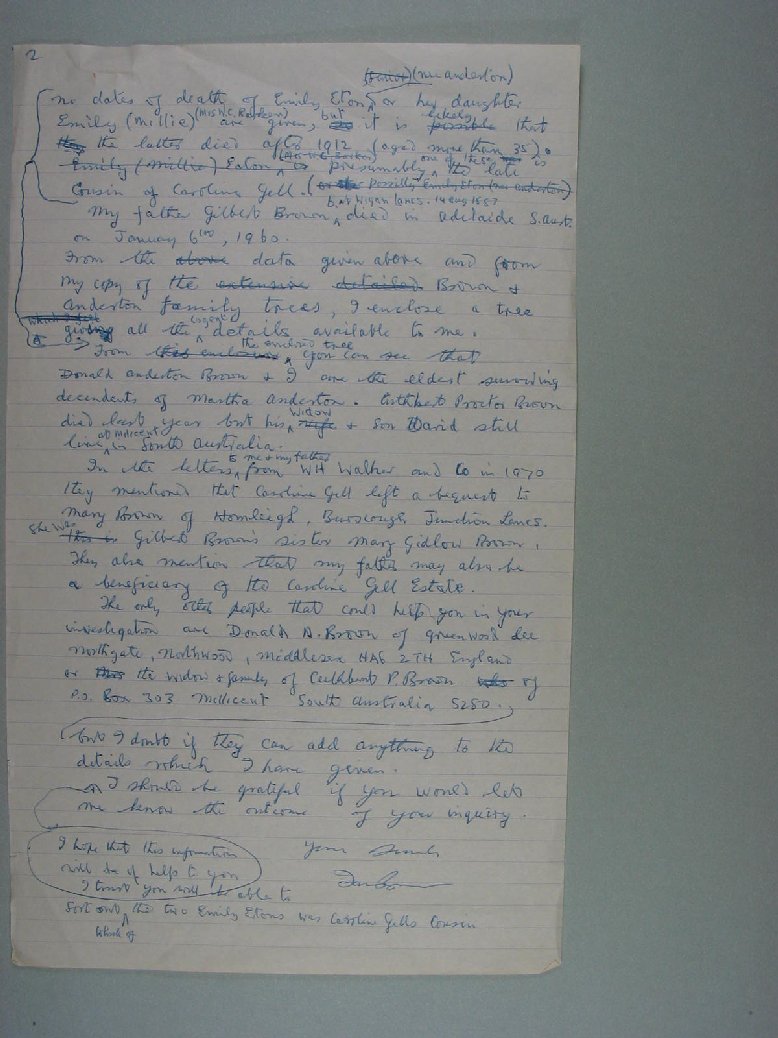 2
(Senior) (nee anderton)
no dates of death of Emily Eton or her daughter
Emily (Millie) (Mrs W.C. Barton) are given, but it is possible likely that
the latter died after 1912 (aged more than 35).
Emily (Millie) Eaton is presumably one of these is the late
Cousin of Caroline Gell. (or the possibly Emily Eton (nee anderton)
b. at Wigan Lancs. 14 aug 1887
My father Gilbert Brown, died in adelaide S. Aust.
on January 6th, 1960.
From the above data given above and from
my copy of the extensive detailed Brown &
anderton family trees, I enclose a tree
which I give giving all the cogent details available to me.
A From this enclosure the enclosed tree you can see that
Donald anderton Brown & I are the eldest surviving
decendents of Martha anderton. Cuthbert Proctor Brown
died last year but his wife widow & son David still
live at Millicent in South Australia.
In the letters to me & my father from WH Walker and Co in 1970
they mentioned that Caroline Gell left a bequest to
Mary Brown of Hornleigh, Burscough Junction Lancs.
This is She was Gilbert Brown's sister Mary Gidlow Brown.
They also mention that my father may also be
a beneficiary of the Caroline Gell Estate.
The only other people that could help you in your
investigation are Donald A. Brown of greenwood dee
northgate, Northwood, Middlesex HA6 2TH England
or the widow & family of Cuthbert P. Brown who of
P.O. Box 303 Millicent South Australia 5280.,
but I doubt if they can add anything to the
details which I have given.
I should be grateful if you would let
me know the outcome of your inquiry.
I hope that this information
will be of help to you
Yours
I trust you will be able to
sort out which of the two Emily Etons was Caroline Gells Cousin